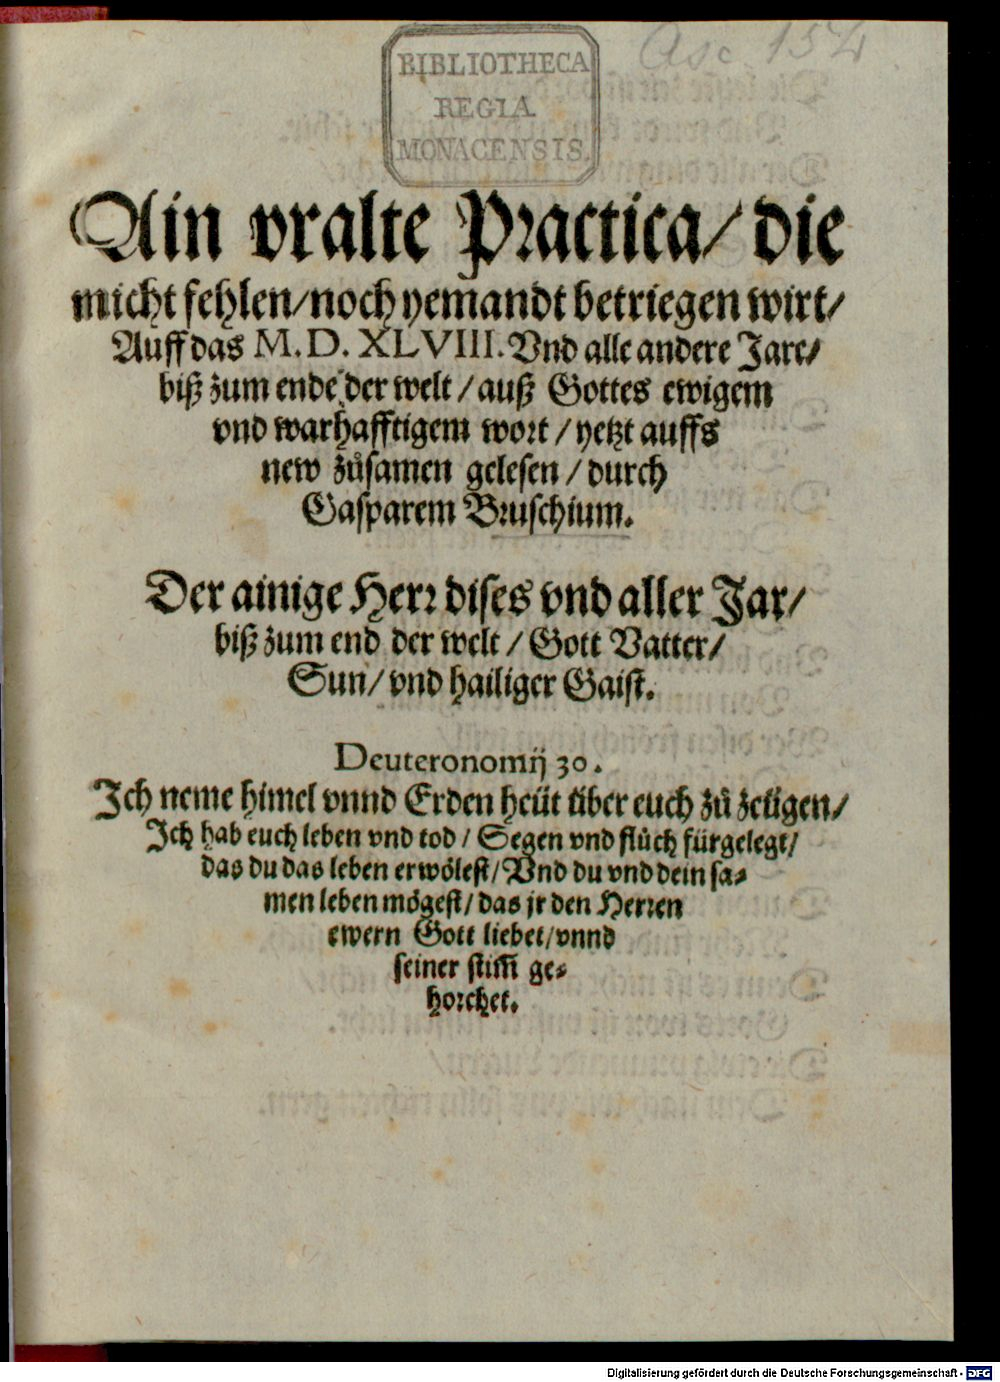 Asc. 154
BIBLIOTHECA
REGIA
MONACENSIS.
Ain vralte Practica/ die
micht fehlen/noch yemandt betriegen wirt/
Auff das M.D.XLVIII. Vnd alle andere Jare/
biß zum ende der welt / auß Gottes ewigem
vnd warhafftigem wort / yetzt auffs
new zůsamen gelesen / durch
Gasparem Bruschium.
Der ainige Herr dises vnd aller Jar/
biß zum end der welt / Gott Vatter/
Sun/ vnd hailiger Gaist.
Deuteronomij 30.
Ich neme himel vnnd Erden heüt über euch zů zeügen/
Ich hab euch leben vnd tod / Segen vnd flůch fürgelegt/
das du das leben erwölest/ Vnd du vnd dein sa⸗
men leben mögest/ das jr den Herren
ewern Gott liebet/vnnd
seiner stim̃ ge⸗
horchet.
Digitalisierung gefördert durch die Deutsche Forschungsgemeinschaft - DFG